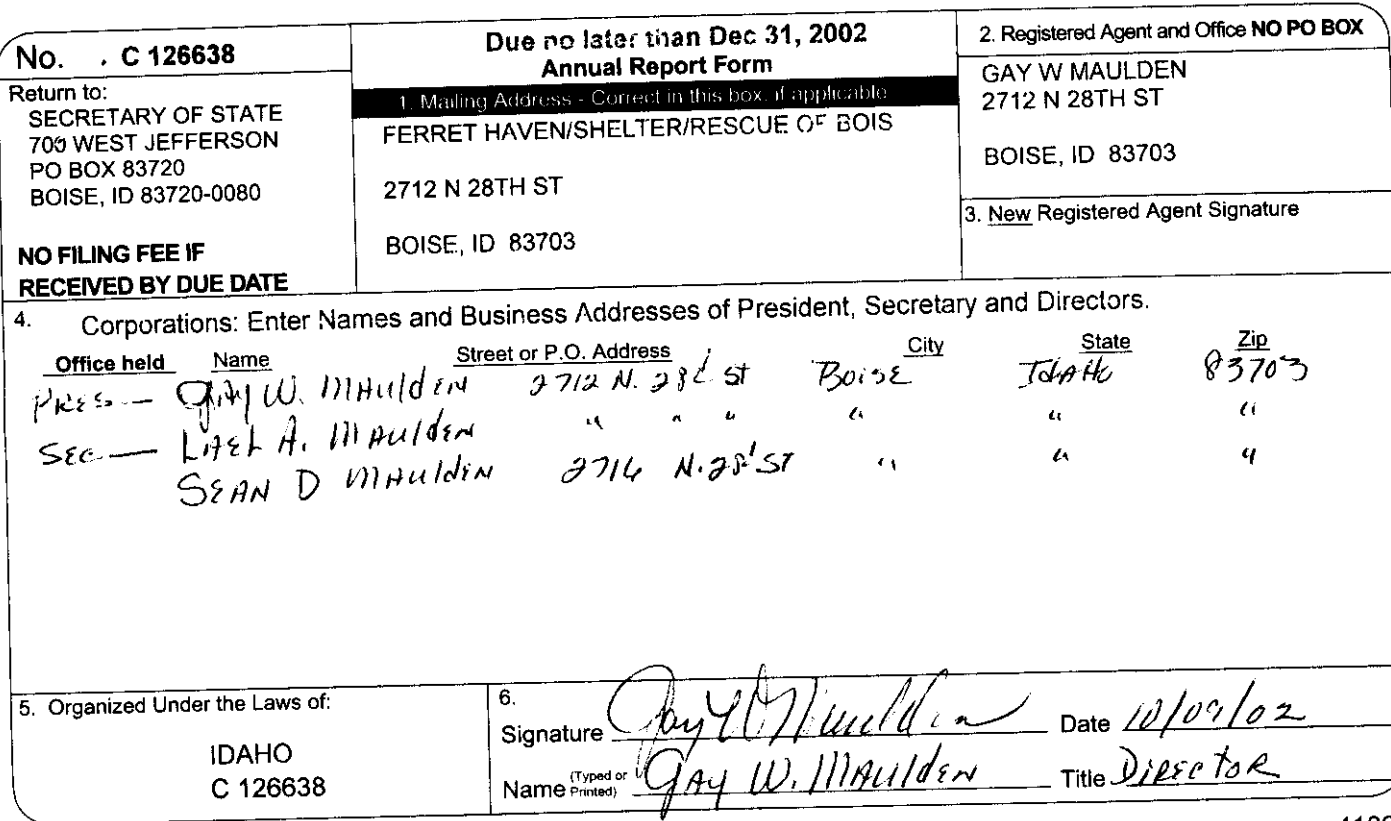 No. . C 126638
Return to:
SECRETARY OF STATE
700 WEST JEFFERSON
PO BOX 83720
BOISE, ID 83720-0080
NO FILING FEE IF
RECEIVED BY DUE DATE
Due no later than Dec 31, 2002
Annual Report Form
1. Mailing Address - Correct in this box, if applicable
FERRET HAVEN/SHELTER/RESCUE OF BOIS
2712 N 28TH ST
BOISE, ID 83703
2. Registered Agent and Office NO PO BOX
GAY W MAULDEN
2712 N 28TH ST
BOISE, ID 83703
3. New Registered Agent Signature
4. Corporations: Enter Names and Business Addresses of President, Secretary and Directors.
Office held Name Street or P.O. Address City State Zip
PRES — GAY W. MAulden 2712 N. 28 St Boise IdAHo 83703
Sec — LAEL A. MAulden " " " " " "
SEAN D MAulden 2716 N. 28 ST " " "
5. Organized Under the Laws of:
IDAHO
C 126638
6.
Signature Gay W Maulden Date 10/09/02
Name (Typed or Printed) GAY W. MAulden Title Director